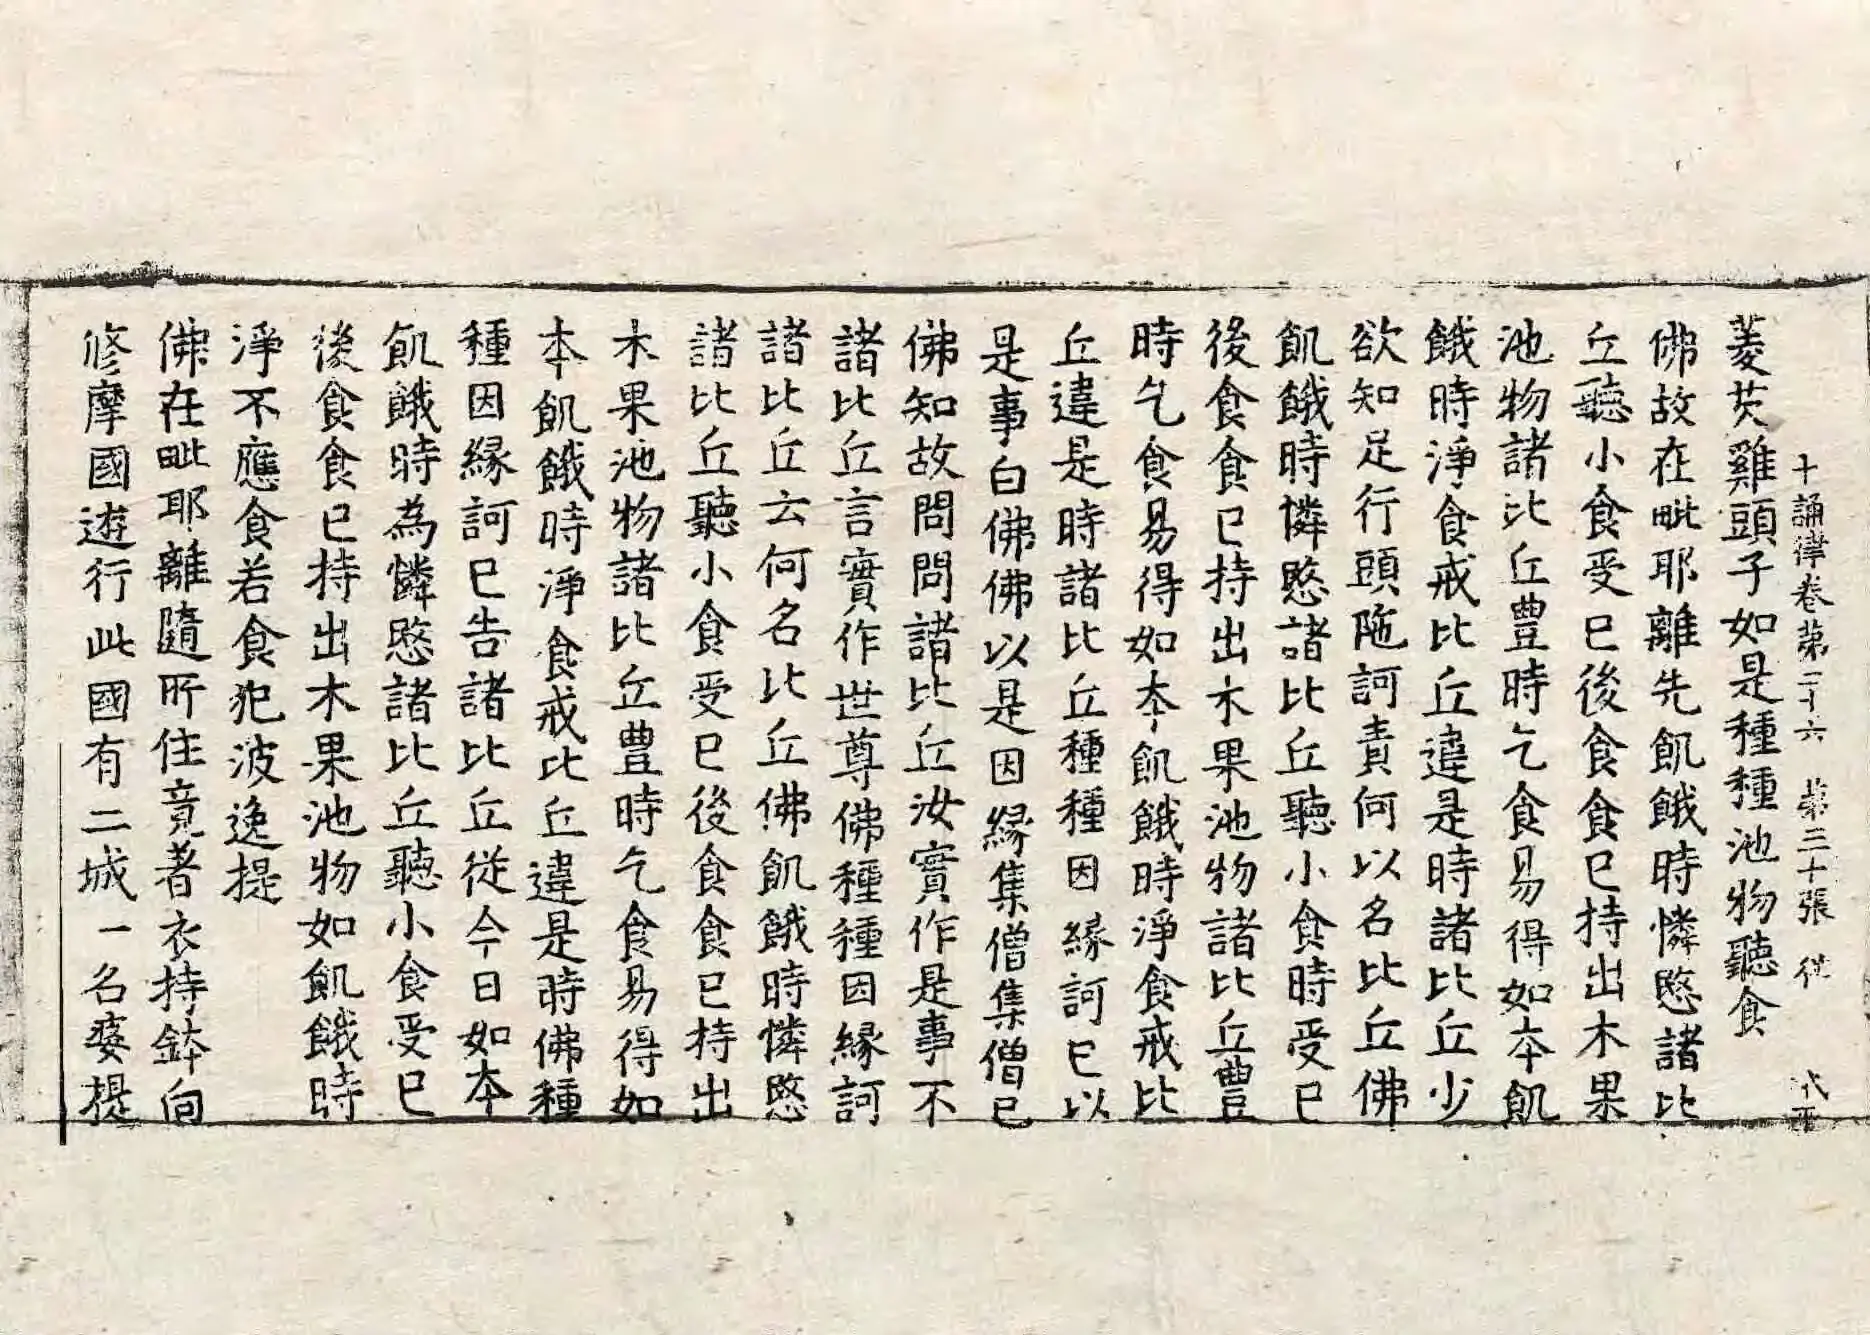 十誦律卷苐二十六 苐三十張 従
菱芡雞頭子如是種種池物聽食
佛故在毗耶離先飢餓時憐愍諸比
丘聽小食受已後食食已持出木果
池物諸比丘豊時乞食易得如本飢
餓時淨食戒比丘違是時諸比丘少
欲知足行頭陁訶責何以名比丘佛
飢餓時憐愍諸比丘聽小食時受已
後食食已持出木果池物諸比丘豊
時乞食易得如本飢餓時淨食戒比
丘違是時諸比丘種種因縁訶已以
是事白佛佛以是因縁集僧集僧已
佛知故問問諸比丘汝實作是事不
諸比丘言實作世尊佛種種因縁訶
諸比丘云何名比丘佛飢餓時憐愍
諸比丘聽小食受已後食食已持出
木果池物諸比丘豊時乞食易得如
本飢餓時淨食戒比丘違是時佛種
種因縁訶已告諸比丘從今日如本
飢餓時為憐愍諸比丘聽小食受已
後食食已持出木果池物如飢餓時
淨不應食若食犯波逸提
佛在毗耶離隨所住竟著衣持鉢向
修摩國遊行此國有二城一名婆提